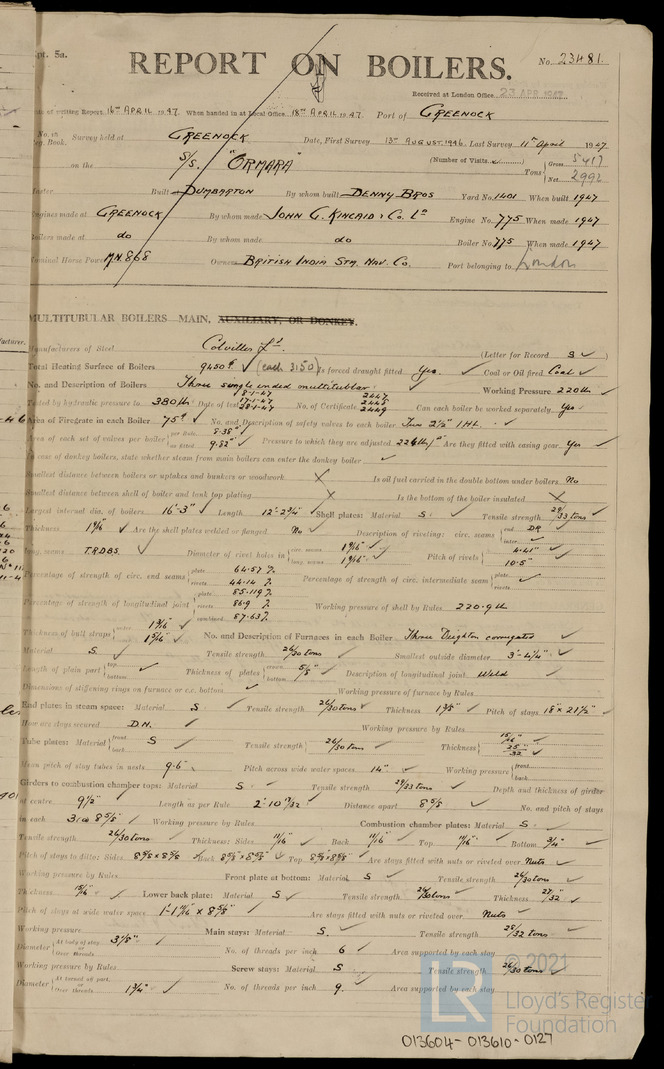 pt. 5a.
REPORT ON BOILERS.
No. 23481.
Received at London Office 23 APR 1947
of written Report 16th APRIL 1947. When handed in at Local Office 18th APRIL 1947. Port of GREENOCK
No. in Reg. Book. Survey held at GREENOCK Date, First Survey 13th AUGUST, 1946. Last Survey 11th April 1947
on the S/S. "ORMARA" (Number of Visits ) Tons { Gross 5417 Net 2992
Built DUMBARTON By whom built DENNY BROS Yard No. 1401 When built 1947
Engines made at GREENOCK By whom made JOHN G. KINCAID & Co. Ld Engine No. 775 When made 1947
Boilers made at do By whom made do Boiler No. 775 When made 1947
Nominal Horse Power MN. 868 Owners BRITISH INDIA STM. NAV. Co. Port belonging to London
MULTITUBULAR BOILERS MAIN, AUXILIARY, OR DONKEY.
Manufacturers of Steel Colvilles Ld. (Letter for Record S ✓ )
Total Heating Surface of Boilers 9450 ✓ (each 3150) Is forced draught fitted Yes ✓ Coal or Oil fired Coal ✓
No. and Description of Boilers Three single ended multitubular Working Pressure 220 lb ✓
Tested by hydraulic pressure to 380 lb. Date of test 8-1-47 17-1-47 28-1-47 No. of Certificate 2447 2448 2449 Can each boiler be worked separately Yes ✓
Area of Firegrate in each Boiler 75 ✓ No. and Description of safety valves to each boiler Two 2½" I.H.L. ✓
Area of each set of valves per boiler { per Rule 8.38 as fitted 9.82 ✓ Pressure to which they are adjusted 224 lb/ ✓ Are they fitted with easing gear Yes ✓
In case of donkey boilers, state whether steam from main boilers can enter the donkey boiler ✓
Smallest distance between boilers or uptakes and bunkers or woodwork Is oil fuel carried in the double bottom under boilers No
Smallest distance between shell of boiler and tank top plating Is the bottom of the boiler insulated
Largest internal dia. of boilers 16'-3" ✓ Length 12'-2¾" ✓ Shell plates: Material S. ✓ Tensile strength 29/33 tons ✓
Thickness 1 9/16 ✓ Are the shell plates welded or flanged No ✓ Description of riveting: circ. seams { end DR ✓ inter.
long. seams T.R.D.B.S. ✓ Diameter of rivet holes in { circ. seams 1 9/16" ✓ long. seams 1 9/16" ✓ Pitch of rivets { 4.41" ✓ 10.5"
Percentage of strength of circ. end seams { plate 64.57 % rivets 44.14 % Percentage of strength of circ. intermediate seam { plate rivets ✓
Percentage of strength of longitudinal joint { plate 85.119 % rivets 86.9 % combined 87.63 % Working pressure of shell by Rules 220.9 lb
Thickness of butt straps { outer 1 3/16 inner 1 5/16 ✓ No. and Description of Furnaces in each Boiler Three Deighton corrugated ✓
Material S ✓ Tensile strength 26/30 tons ✓ Smallest outside diameter 3'-4¼" ✓
Length of plain part { top bottom ✓ Thickness of plates { crown bottom 5/8" ✓ Description of longitudinal joint Weld ✓
Dimensions of stiffening rings on furnace or c.c. bottom ✓ Working pressure of furnace by Rules
End plates in steam space: Material S ✓ Tensile strength 26/30 tons ✓ Thickness 1 3/8" ✓ Pitch of stays 18" x 21½" ✓
How are stays secured D.N. ✓ Working pressure by Rules
Tube plates: Material { front back S ✓ Tensile strength { 26/30 tons ✓ Thickness { 15/16" 25/32" ✓
Mean pitch of stay tubes in nests 9.6 Pitch across wide water spaces 14" ✓ Working pressure { front back
Girders to combustion chamber tops: Material S. ✓ Tensile strength 29/33 tons ✓ Depth and thickness of girder
at centre 9½" ✓ Length as per Rule 2'-10 7/32" ✓ Distance apart 8 5/8" ✓ No. and pitch of stays
in each 3 @ 8 5/8" ✓ Working pressure by Rules Combustion chamber plates: Material S ✓
Tensile strength 26/30 tons ✓ Thickness: Sides 11/16" ✓ Back 11/16" ✓ Top 11/16" ✓ Bottom 3/4" ✓
Pitch of stays to ditto: Sides 8 5/8 x 8 5/8 ✓ Back 8 5/8 x 8 5/8" ✓ Top 8 5/8 x 8 5/8" Are stays fitted with nuts or riveted over Nuts ✓
Working pressure by Rules Front plate at bottom: Material S. ✓ Tensile strength 26/30 tons
Thickness 15/16" ✓ Lower back plate: Material S ✓ Tensile strength 26/30 tons ✓ Thickness 27/32" ✓
Pitch of stays at wide water space 1'-1 11/16" x 8 5/8" ✓ Are stays fitted with nuts or riveted over Nuts ✓
Working pressure Main stays: Material S. ✓ Tensile strength 28/32 tons ✓
Diameter { At body of stay or Over threads 3 1/8" ✓ No. of threads per inch 6 ✓ Area supported by each stay
Working pressure by Rules Screw stays: Material S ✓ Tensile strength 26/30 tons ✓
Diameter { At turned off part or Over threads 1¾" ✓ No. of threads per inch 9. Area supported by each stay
© 2021
LR Lloyd's Register
Foundation
013604-013610-0127